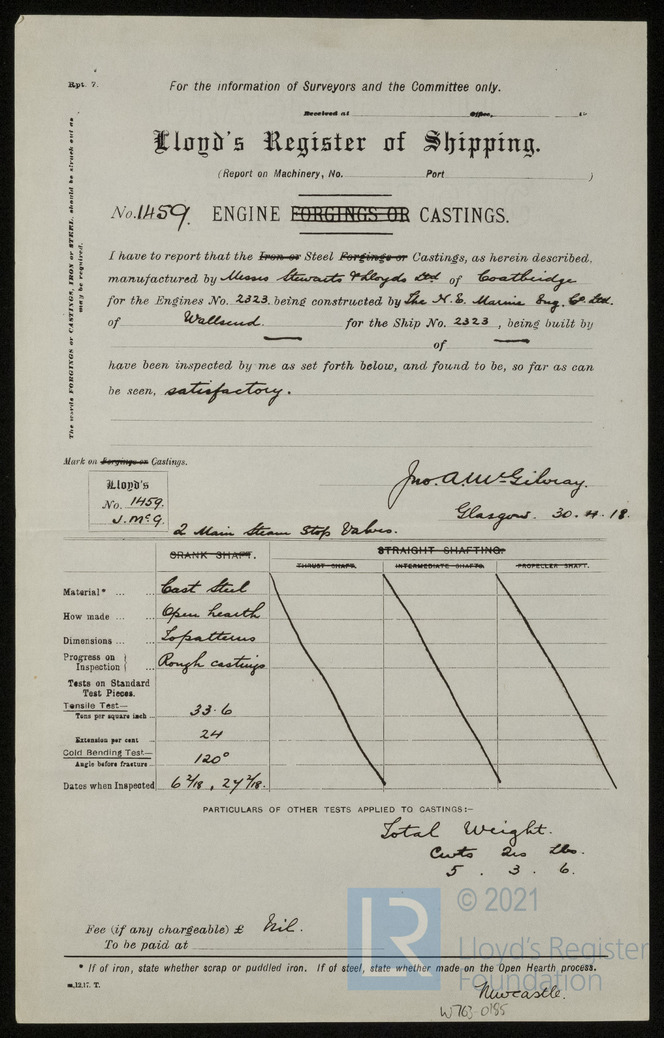 Rpt. 7.
For the information of Surveyors and the Committee only.
Received at Office, 19
Lloyd's Register of Shipping.
(Report on Machinery, No. Port )
No. 1459. ENGINE FORGINGS OR CASTINGS.
The words FORGINGS or CASTINGS, IRON or STEEL, should be struck out as may be required.
I have to report that the Iron or Steel Forgings or Castings, as herein described,
manufactured by Messrs Stewarts & Lloyds Ltd of Coatbridge
for the Engines No. 2323 being constructed by The N.E. Marine Eng. Co Ltd.
of Wallsend. for the Ship No. 2323, being built by
— of —
have been inspected by me as set forth below, and found to be, so far as can
be seen, satisfactory.
Mark on Forgings or Castings.
Lloyd's
No. 1459.
J. McG.
Jno. A McGilvray.
Glasgow. 30.4.18.
2 Main Steam Stop Valves.
CRANK SHAFT. STRAIGHT SHAFTING.
THRUST SHAFT. INTERMEDIATE SHAFTS. PROPELLER SHAFT.
Material* ... ... Cast Steel
How made ... ... Open hearth
Dimensions ... ... To patterns
Progress on Inspection } ... Rough castings
Tests on Standard
Test Pieces.
Tensile Test—
Tons per square inch ... 33.6
Extension per cent 24
Cold Bending Test—
Angle before fracture ... 120°
Dates when Inspected 6 2/18, 27 2/18.
PARTICULARS OF OTHER TESTS APPLIED TO CASTINGS:—
Total Weight.
Cwts Qrs Lbs.
5 . 3 . 6.
Fee (if any chargeable) £ Nil.
To be paid at
* If of iron, state whether scrap or puddled iron. If of steel, state whether made on the Open Hearth process.
m.12.17. T.
Newcastle.
W763-0185
LR
© 2021
Lloyd's Register
Foundation